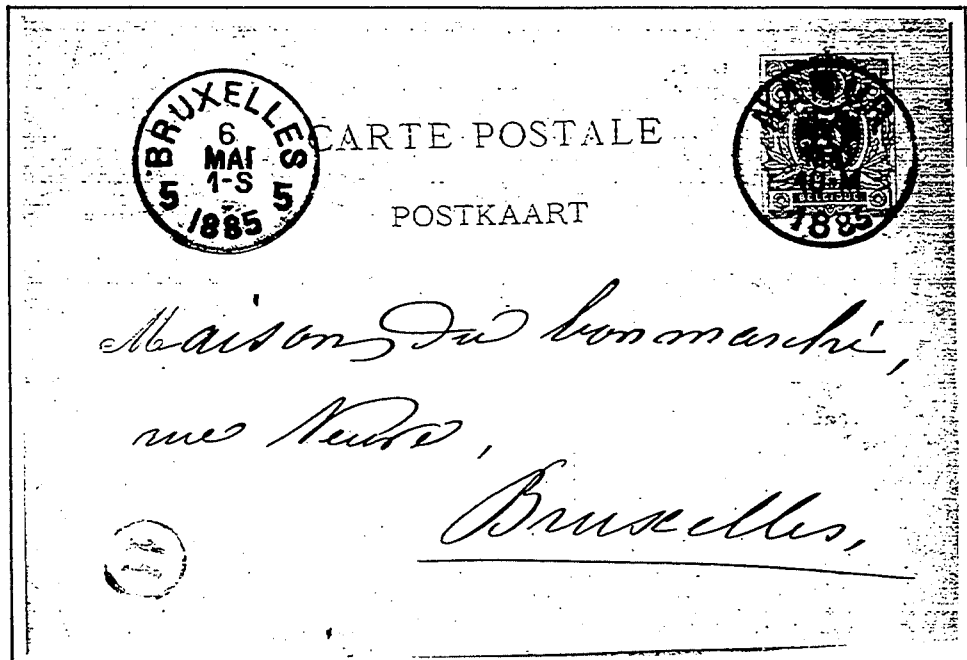 BRUXELLES
6
MAI
1-S
5 5
1885
CARTE POSTALE
POSTKAART
NAMUR
10-M
1885
BELGIQUE
Maison du bon marché,
rue Neuve,
Bruxelles,